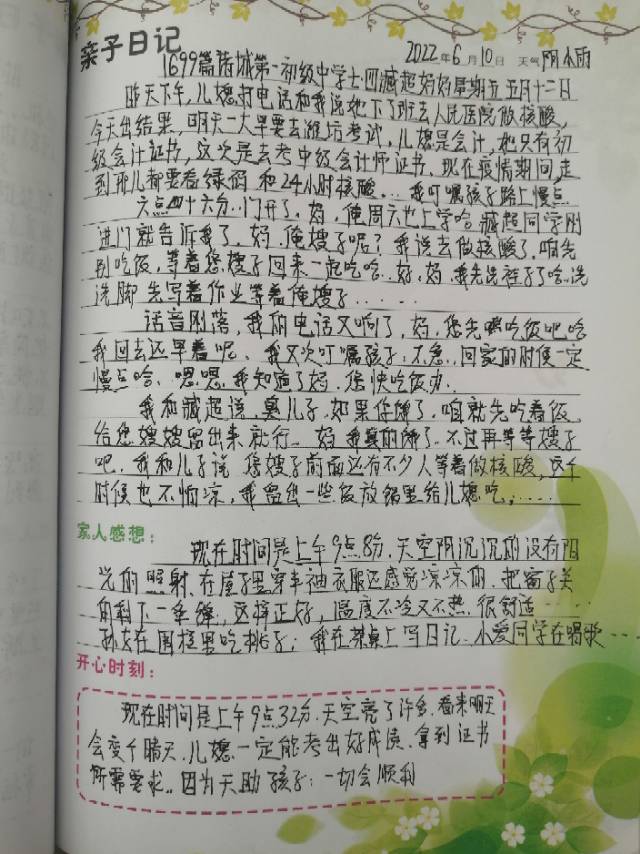 亲子日记
2022年6月10日 天气阴小雨
1699篇诸城第一初级中学七.四臧超妈妈星期五五月十二日
昨天下午,儿媳打电话和我说她下了班去人民医院做核酸,
今天出结果,明天一大早要去潍坊考试,儿媳是会计,她只有初
级会计证书,这次是去考中级会计师证书.现在疫情期间,走
到哪儿都要看绿码和24小时核酸...我叮嘱孩子路上慢点
六点四十六分..门开了.妈,俺周六也上学哈.臧超同学刚
进门就告诉我了.妈.俺嫂子呢?我说去做核酸了.咱先
别吃饭,等着您嫂子回来一起吃哈.好,妈,我先洗袜子了哈.洗
洗脚先写着作业等着俺嫂子......
话音刚落,我的电话又响了,妈,您先吃饭吧哈
我回去还早着呢、我又次叮嘱孩子:不急,回家的时候一定
慢点哈、嗯嗯.我知道了妈.您快吃饭办.
我和臧超说,臭儿子.如果你饿了.咱就先吃着饭
给您嫂嫂留出来就行.妈我真的饿了.不过再等等嫂子
吧.我和儿子说您嫂子前面还有不少人等着做核酸,这个
时候也不怕凉,我留出一些饭放锅里给儿媳吃,......
家人感想:
现在时间是上午9点8分.天空阴沉沉的没有阳
光的照射.在屋子里穿半袖衣服还感觉凉凉的.把窗子关
的剩下一条缝,这样正好,温度不冷又不热.很舒适....
孙女在围栏里吃桃子;我在菜桌上写日记.小爱同学在唱歌...
开心时刻:
现在时间是上午9点32分.天空亮了许多.看来明天
会变个晴天.儿媳一定能考出好成绩、拿到证书
所需要求..因为天助孩子:一切会顺利